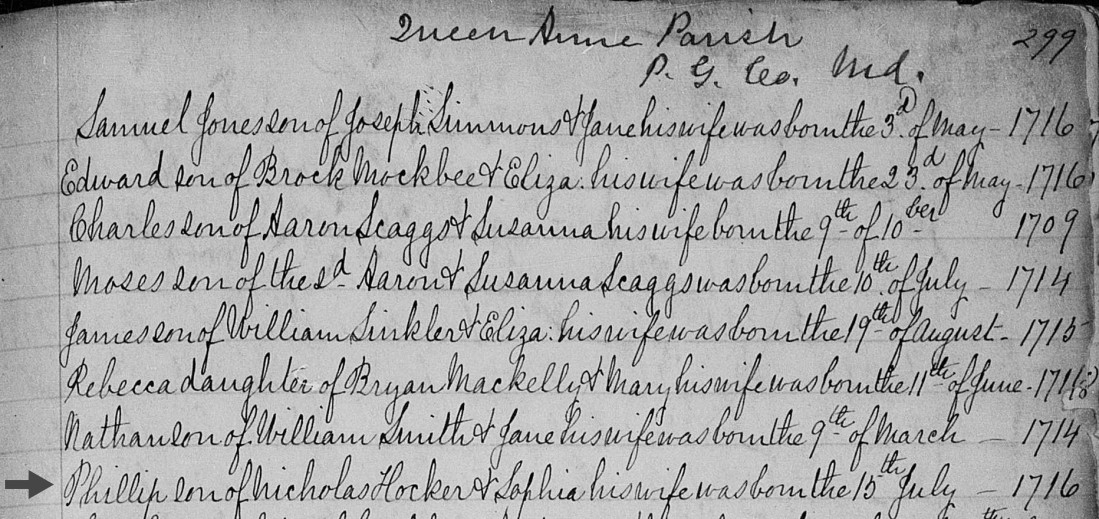 Queen Anne Parish 299
P. G. Co. Md.
Samuel Jones son of Joseph Simmons & Jane his wife was born the 3d. of May - 1716
Edward son of Brock Mockbee & Eliza: his wife was born the 23d. of May - 1716
Charles son of Aaron Scaggs & Susanna his wife born the 9th of 10ber 1709
Moses son of the sd Aaron & Susanna Scaggs was born the 10th. of July - 1714
James son of William Sinkler & Eliza: his wife was born the 19th of August - 1715
Rebecca daughter of Bryan Mackelly & Mary his wife was born the 11th of June -
Nathan son of William Smith & Jane his wife was born the 9th of March - 1714
Phillip son of Nicholas Hocker & Sophia his wife was born the 15th July - 1716